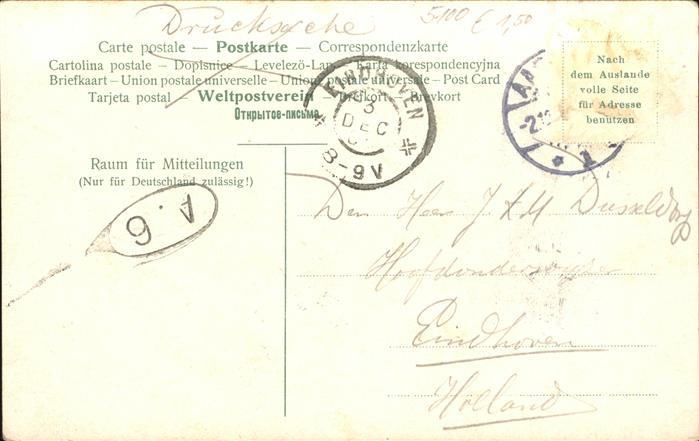 Drucksache 5-100 £ 1,50
Carte postale — Postkarte — Correspondenzkarte
Cartolina postale — Dopisnice — Levelező-Lap — Karta korespondencyjna
Briefkaart — Union postale universelle — Unione postale universale — Post Card
Tarjeta postal — Weltpostverein — Brefkort — Brevkort
Открытое-письмо
Nach
dem Auslande
volle Seite
für Adresse
benutzen
EINDHOVEN
3
DEC
8-9V
AA
-2.12
1
Raum für Mitteilungen
(Nur für Deutschland zulässig!)
A.6
Den Heer J A M Dusseldorp
Hoofdonderwijzer
Eindhoven
Holland